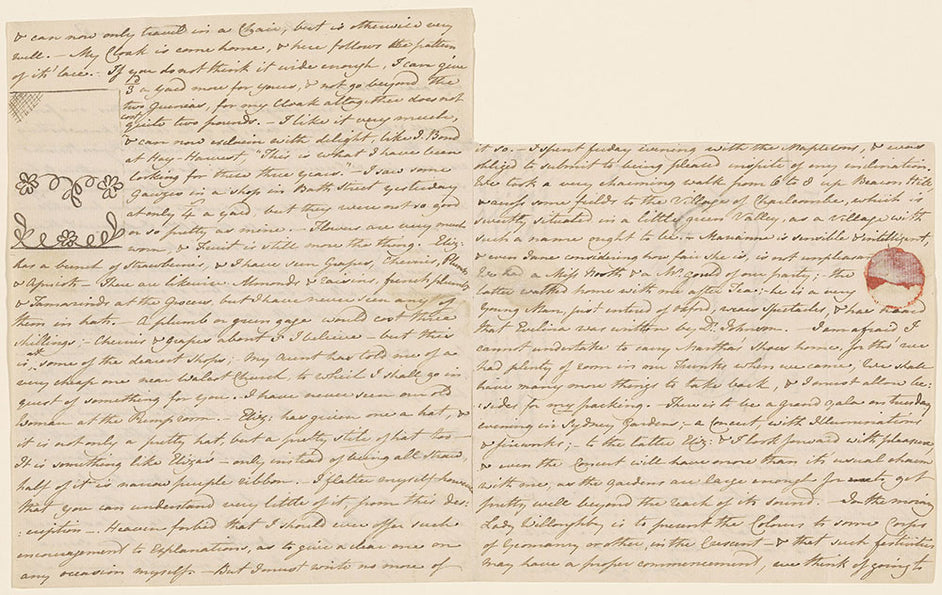 & can now only travel in a Chair, but is otherwise very
well. – My Cloak is come home, & here follows the pattern
of its' lace. – If you do not think it wide enough, I can give
3d a yard more for yours, & not go beyond the
two Guineas, for my Cloak altogether does not
cost quite two pounds. – I like it very much,
& can now exclaim with delight, like J. Bond
at Hay-Harvest, "This is what I have been
looking for these three years." – I saw some
Gauzes in a shop in Bath Street yesterday
at only 4d a yard, but they were not so good
or so pretty as mine. – Flowers are very much
worn, & Fruit is still more the thing. – Eliz:
has a bunch of Strawberries, & I have seen Grapes, Cherries, Plumbs
& Apricots – There are likewise Almonds & raisins, french plumbs
& Tamarinds at the Grocers, but I have never seen any of
them in hats. – A plumb or green gage would cost three
shillings; – Cherries & Grapes about 5 I believe – but this
is at some of the dearest Shops; – My Aunt has told me of a
very cheap one near Walcot Church, to which I shall go in
quest of something for you. – I have never seen an old
Woman at the Pump room. – Eliz: has given me a hat, &
it is not only a pretty hat, but a pretty stile of hat too –
It is something like Eliza's – only instead of being all straw,
half of it is narrow purple ribbon. – I flatter myself however
that you can understand very little of it, from this des-
:cription –. Heaven forbid that I should ever offer such
encouragement to Explanations, as to give a clear one on
any occasion myself. – But I must write no more of
it so. – I spent friday evening with the Mapletons, & was
obliged to submit to being pleased inspite of my inclination.
We took a very charming walk from 6 to 8 up Beacon Hill,
& across some fields to the Village of Charlcombe, which is
sweetly situated in a little green Valley, as a Village with
such a name ought to be. – Marianne is sensible & intelligent,
& even Jane considering how fair she is, is not unpleasant.
We had a Miss North & a Mr. Gould of our party; – the
latter walked home with me after Tea; – he is a very
Young Man, just entered of Oxford, wears Spectacles, & has heard
that Evelina was written by Dr. Johnson. – I am afraid I
cannot undertake to carry Martha's Shoes home, for tho' we
had plenty of room in our Trunks when we came, We shall
have many more things to take back, & I must allow be-
:sides for my packing. – There is to be a grand gala on tuesday
evening in Sydney Gardens; – a Concert, with Illuminations
& fireworks; – to the latter Eliz: & I look forward with pleasure,
& even the Concert will have more than its' usual charm
with me, as the gardens are large enough for me to get
pretty well beyond the reach of its sound. – In the morning
Lady Willoughby is to present the Colours to some Corps
of Yeomanry or other, in the Crescent – & that such festivities
may have a proper commencement, we think of going to